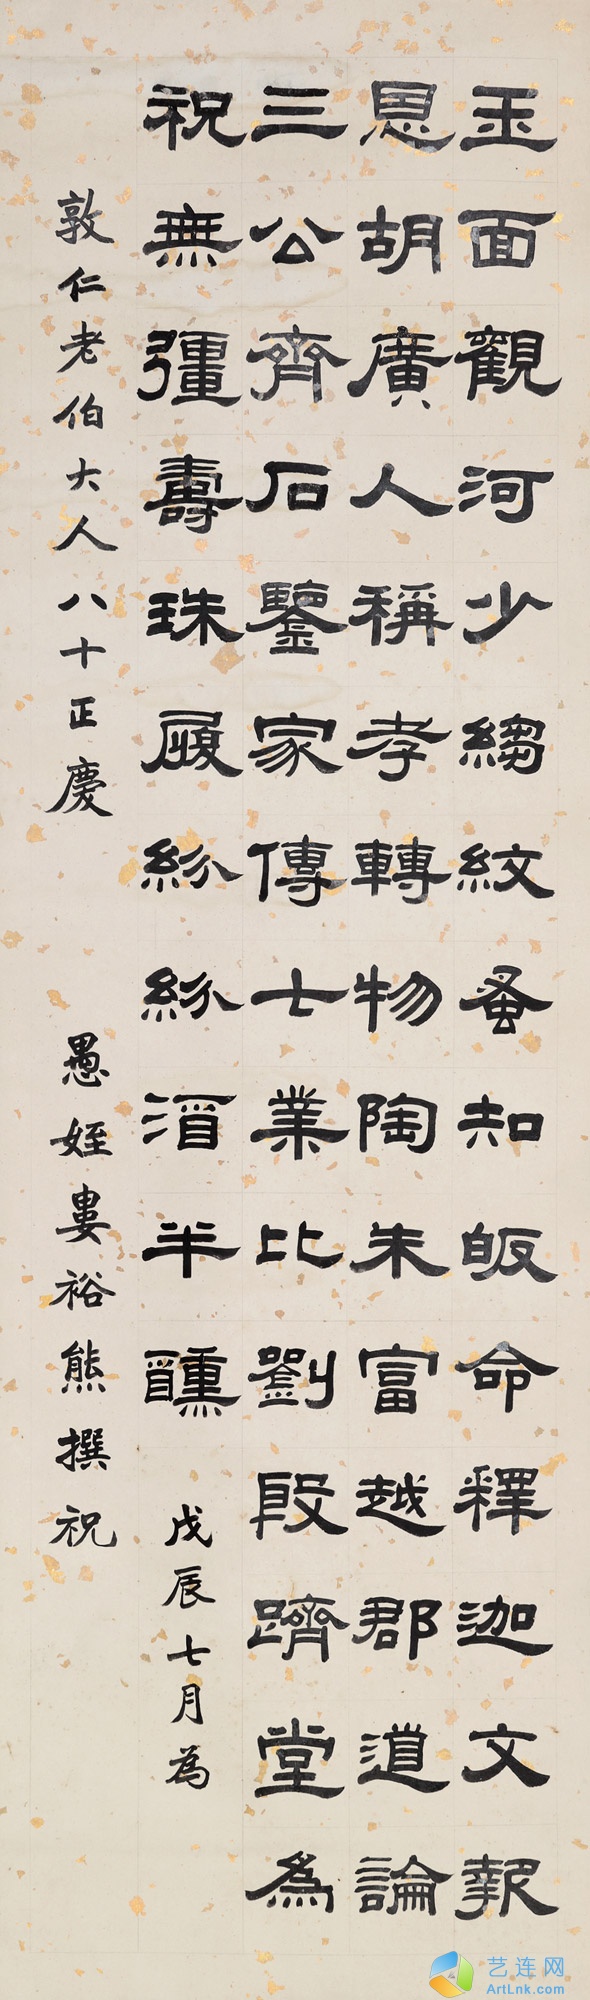 玉面觀河少縐紋蚤知皈命釋迦文報
恩胡廣人稱孝轉物陶朱富越郡道論
三公齊石鑒家傳士業比劉殷躋堂為
祝無彊壽珠履紛紛酒半醺
戊辰七月為
敦仁老伯大人八十正慶
愚姪婁裕熊撰祝
艺连网
ArtLnk.com